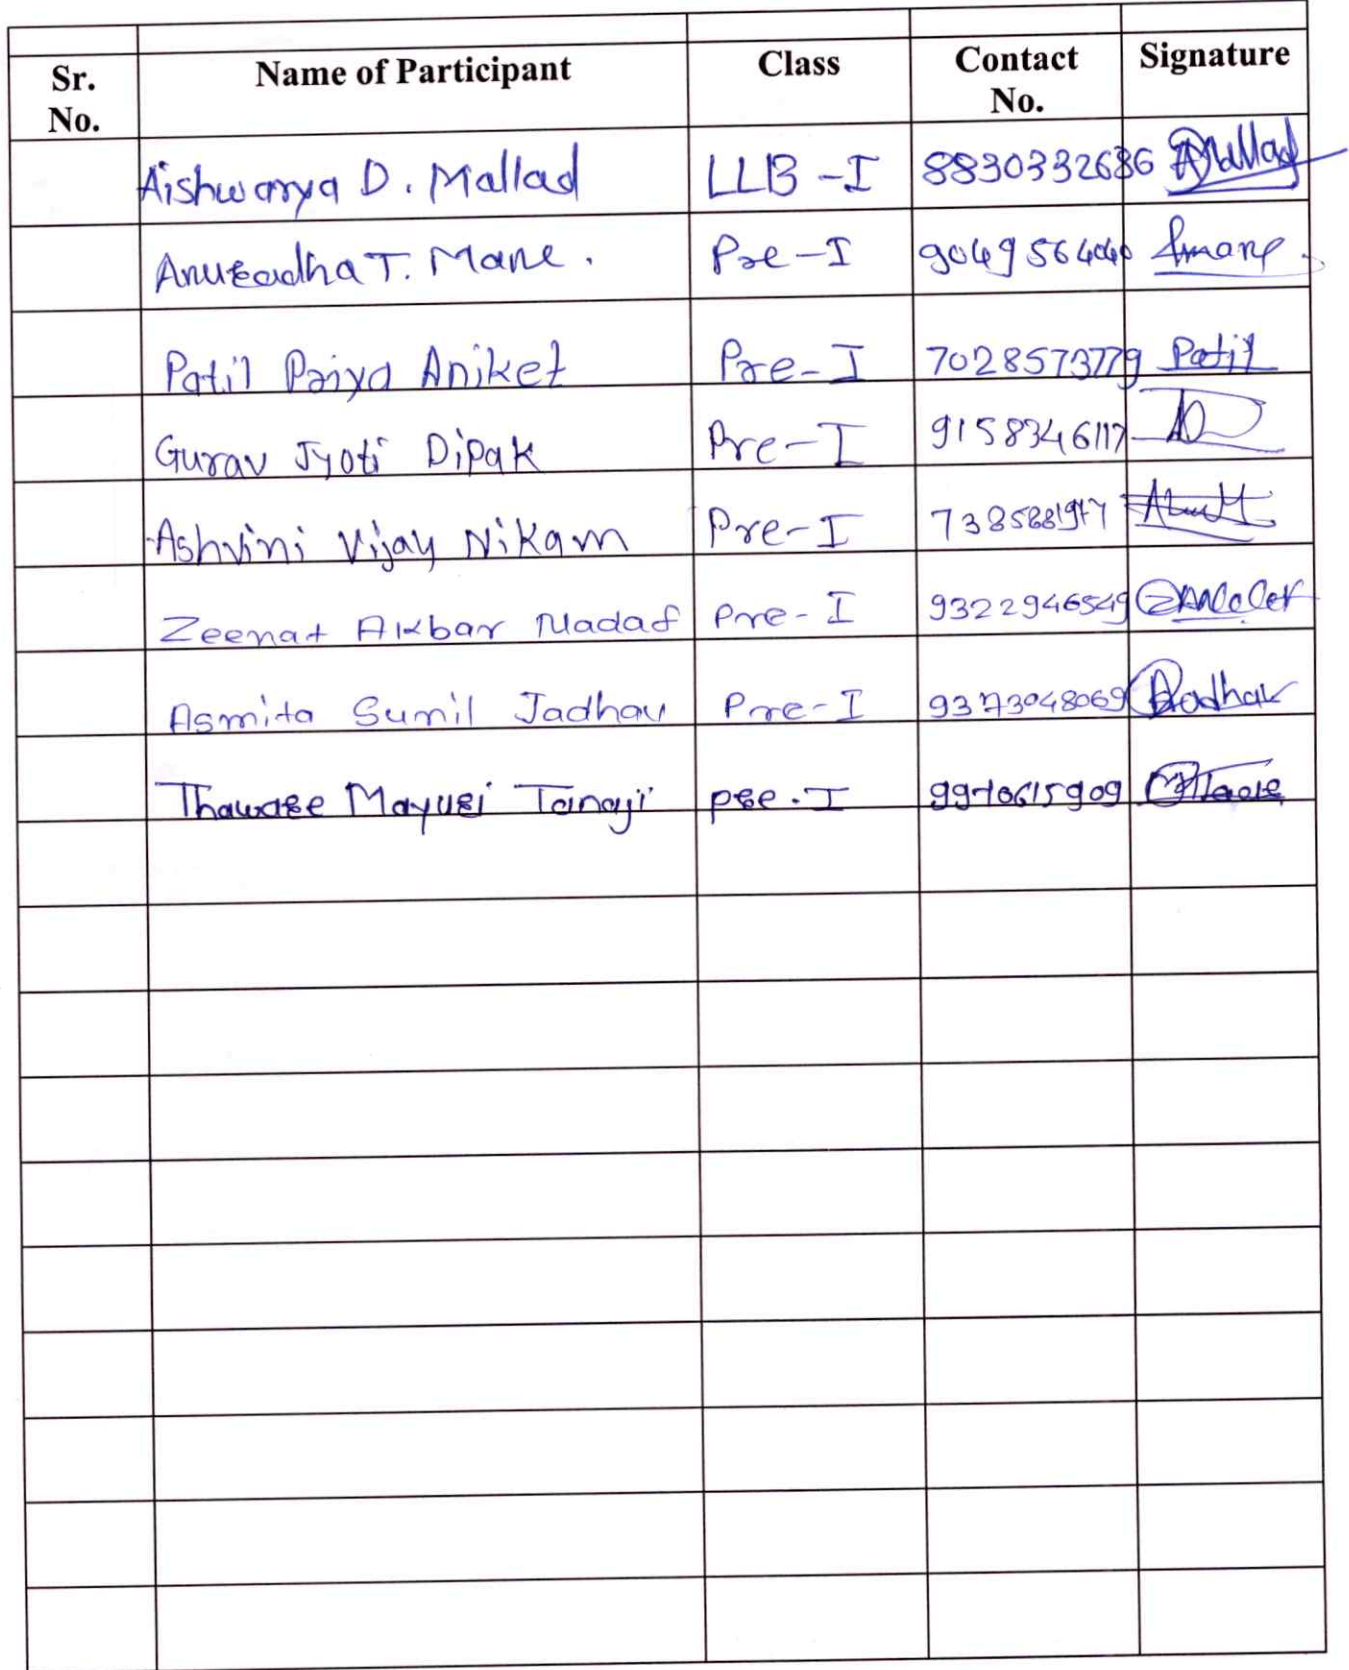 Sr. No. Name of Participant Class Contact No. Signature
Aishwarya D. Mallad LLB-I 8830332686 AMallad
Anuradha T. Mane. Pre-I 9049564040 Amane.
Patil Priya Aniket Pre-I 7028573779 Patil
Gurav Jyoti Dipak Pre-I 9158346117
Ashvini Vijay Nikam Pre-I
Zeenat Akbar Nadaf Pre-I 9322946549
Asmita Sunil Jadhav Pre-I 9373048069 Jadhav
Thaware Mayuri Tanaji pre.I 9970615909